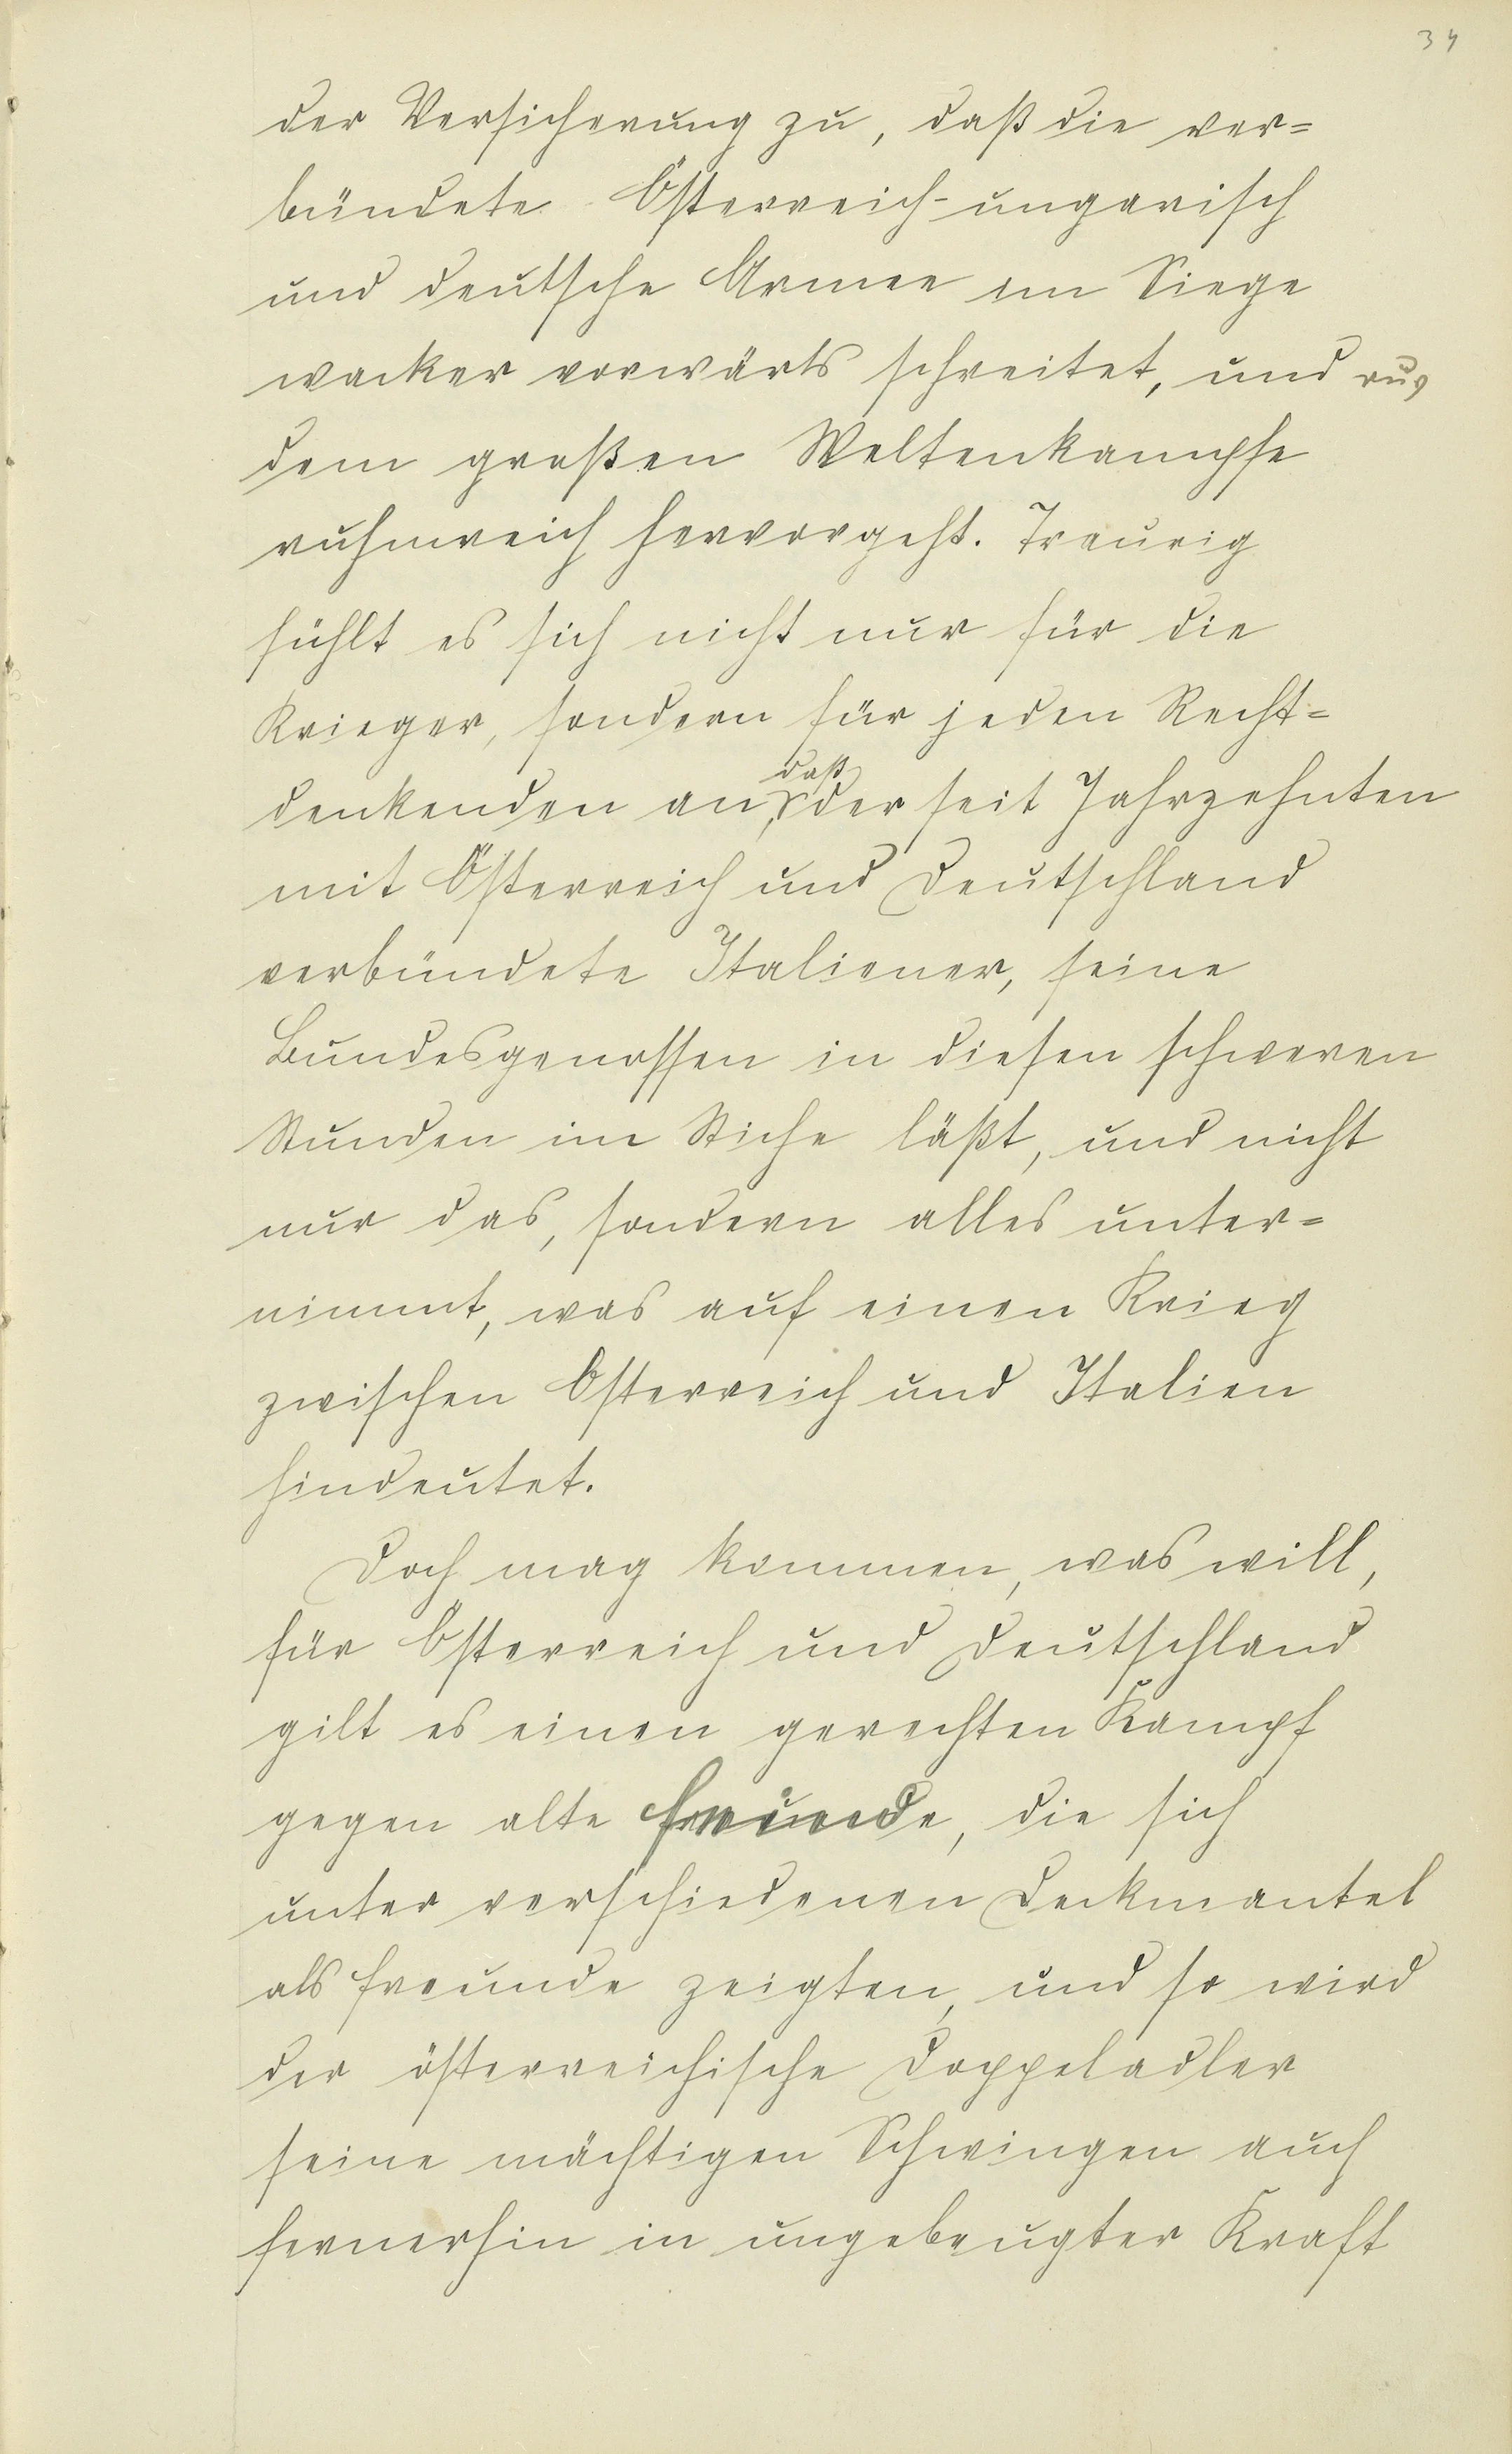 34
der Versicherung zu, daß die ver=
bündete Österreich-ungarisch
und deutsche Armee im Siege
wacker vorwärts schreitet, und aus
dem großen Weltenkampfe
ruhmreich hervorgeht. Traurig
fühlt es sich nicht nur für die
Krieger, sondern für jeden Recht=
daß
denkenden an, der seit Jahrzehnten
mit Österreich und Deutschland
verbündete Italiener, seine
Bundesgenossen in diesen schweren
Stunden im Stiche läßt, und nicht
nur das, sondern alles unter=
nimmt, was auf einen Krieg
zwischen Österreich und Italien
hindeutet.
Doch mag kommen, was will,
für Österreich und Deutschland
gilt es einen gerechten Kampf
gegen alte Freunde, die sich
unter verschiedenen Deckmantel
als Freunde zeigten, und so wird
der österreichische Doppeladler
seine mächtigen Schwingen auch
fernerhin in ungebeugter Kraft